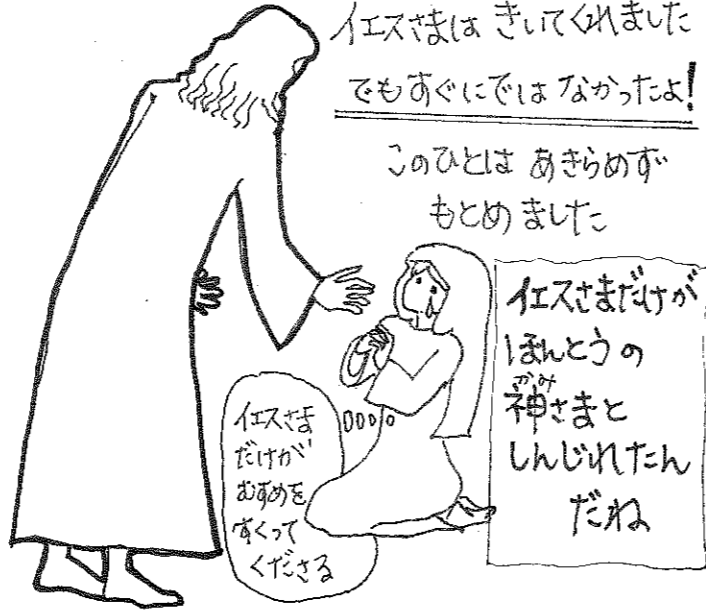 イエスさまは きいてくれました
でもすぐにでは なかったよ!
このひとは あきらめず
もとめました
イエスさまだけが
ほんとうの
神さまと
かみ
しんじれたん
だね
イエスさま
だけが
むすめを
すくって
くださる